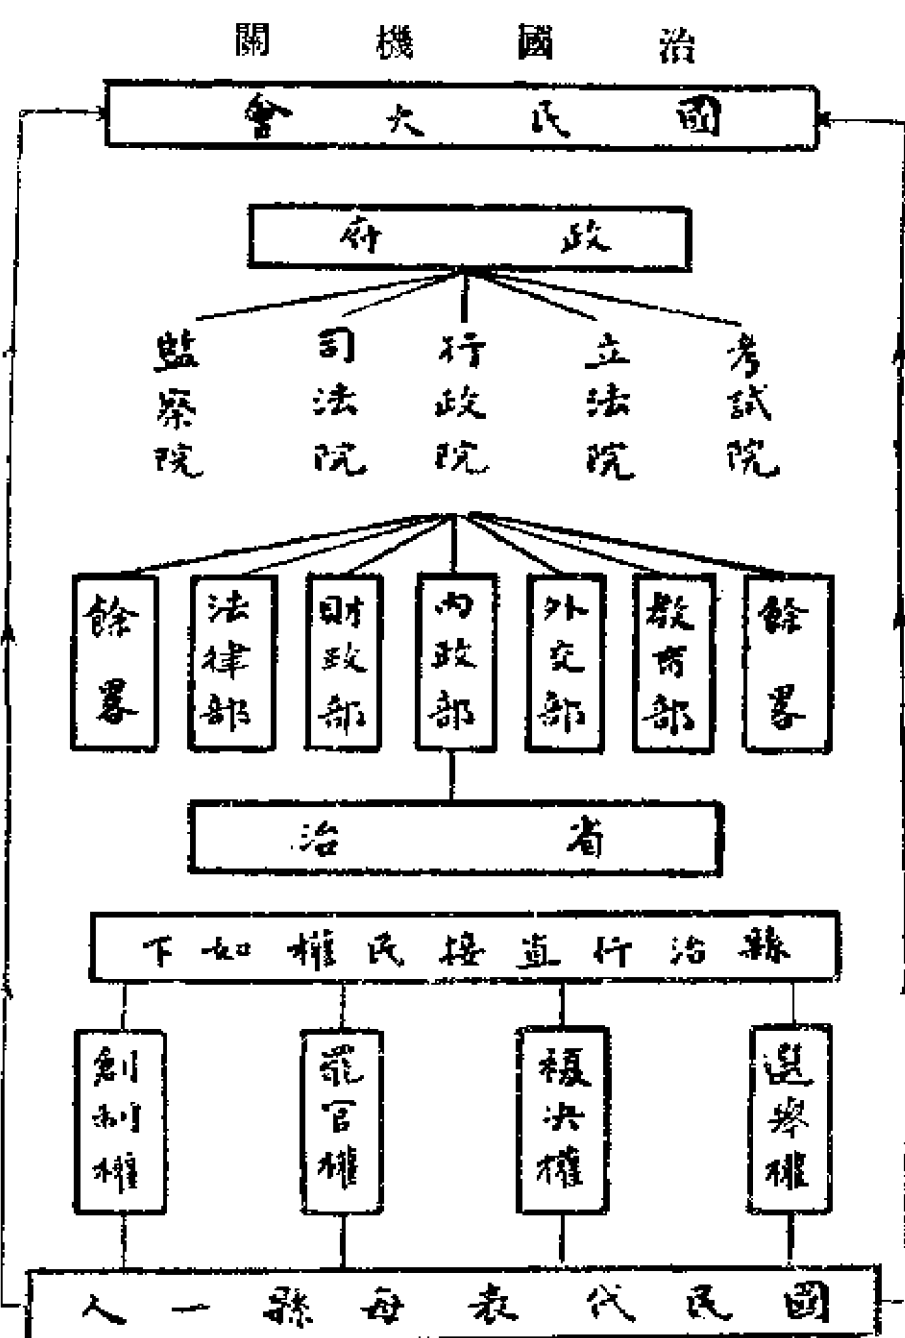 治國機關
國民大會
政府
考試院
立法院
行政院
司法院
監察院
餘畧
教育部
外交部
內政部
財政部
法律部
餘畧
省治
縣治行直接民權如下
選舉權
複决權
罷官權
創制權
國民代表每縣一人